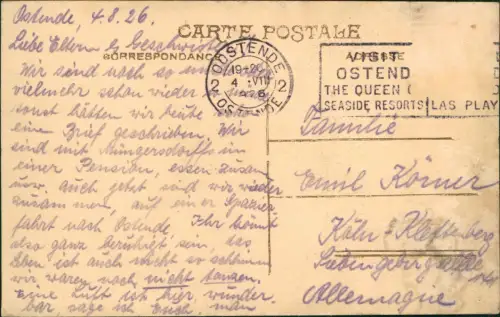 Ostende, 4.8.26.
CARTE POSTALE
Liebe Eltern & Geschwister
CORRESPONDANCE
ADRESSE
OOSTENDE
19-
4 VIII
2 2
OSTENDE
VISIT
OSTEND
THE QUEEN
SEASIDE RESORTS LAS PLAY
Wir sind noch so
vielmehr schon wieder so
sonst hätten wir heute
eine Brief geschrieben. Wir
sind mit Müngersdorffs in
einer Pension, essen zusam
usw. auch jetzt sind wir wieder
zusammen, auf ein er Spazier
fahrt nach Ostende, Ihr könnt
also ganz beruhigt sein, das
Eben ist auch nicht so schlimm
wir waren noch nicht tanzen.
Eine Luft ist hier, wunder
bar, sage ich Euch. man
Familie
Emil Körner
Köln-Klettenberg
Siebengebirgsallee
Allemagne